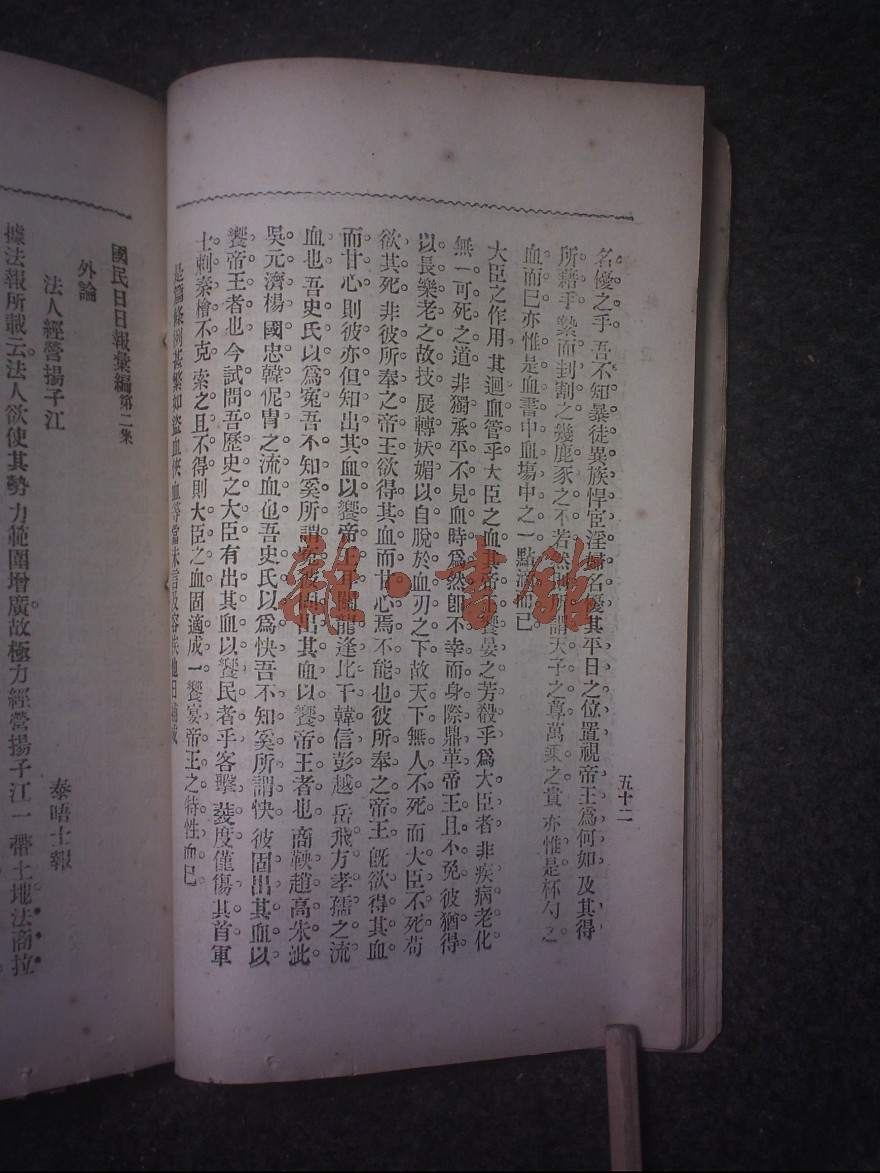 五十二
名優之手。吾不知暴徒異族悍宦淫婦名優其平日之位置視帝王爲何如。及其得
所藉手。縶而刲割之幾鹿豕之不若。然則所謂天子之尊萬乘之貴。亦惟是杯勺之
血而巳亦惟是血書中血塲中之一點滴而已
大臣之作用。其迴血管乎大臣之血其帝王饗宴之芳殽乎爲大臣者。非疾病老化
無一可死之道。非獨承平不見血時爲然卽不幸而身際鼎革帝王且不免。彼猶得
以長樂老之故技。展轉妖媚以自脫於血刃之下故天下無人不死。而大臣不死。苟
欲其死。非彼所奉之帝王欲得其血而甘心焉不能也彼所奉之帝王。旣欲得其血
而甘心。則彼亦但知出其血以饗帝王耳關龍逢比干韓信彭越岳飛方孝孺之流
血也。吾史氏以爲寃吾不知奚所謂寃彼固出其血以饗帝王者也。商鞅趙高朱泚
吳元濟楊國忠韓侂冑之流血也吾史氏以爲快吾不知奚所謂快。彼固出其血以
饗帝王者也。今試問吾歷史之大臣有出其血以饗民者乎客擊裴度僅傷其首軍
士刺秦檜不克。索之且不得則大臣之血固適成一饗宴帝王之特性血巳
是篇條例甚繁如盜血俠血等當未言及容俟他日補
國民日日報彙編第二集
外論
法人經營揚子江
泰晤士報
據法報所載云法人欲使其勢力範圍增廣故極力經營揚子江一帶土地法商拉
雜·書館